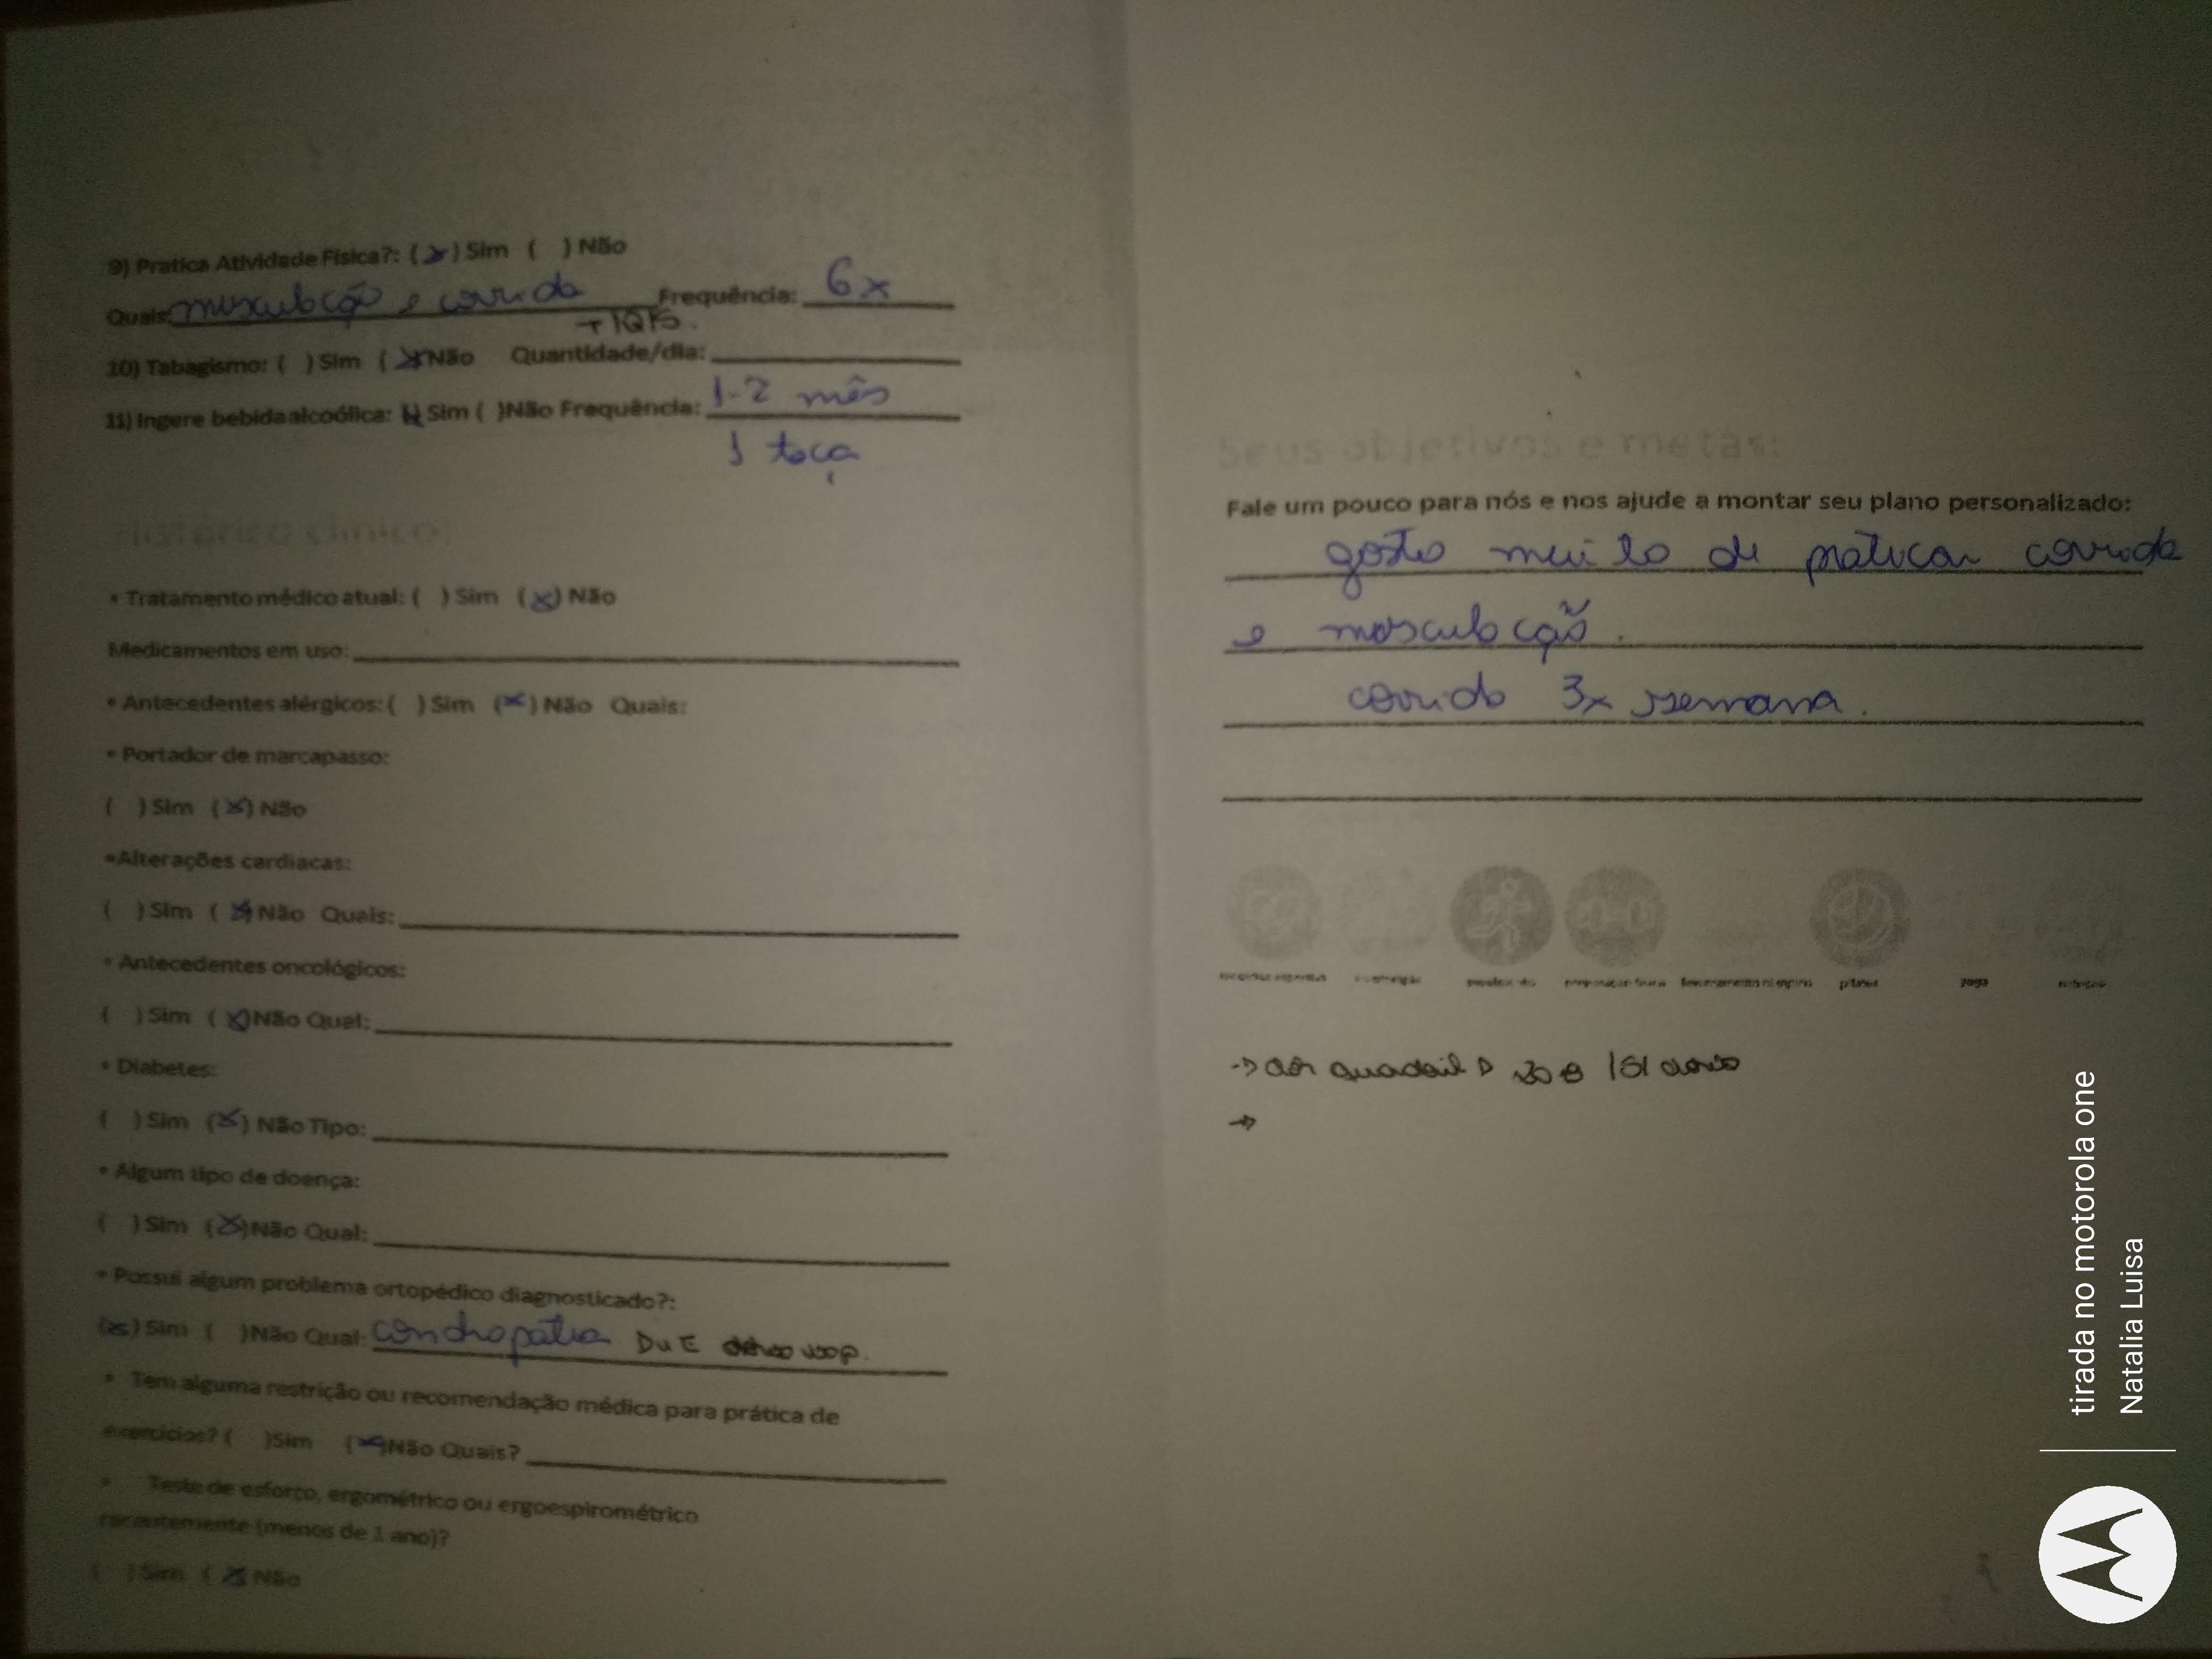 9) Pratica Atividade Física?: (x) Sim ( ) Não
Quais: musculação e corrida Frequência: 6x
10) Tabagismo: ( ) Sim (x) Não Quantidade/dia:
11) Ingere bebida alcoólica: (x) Sim ( ) Não Frequência: 1-2 mês
1 taça
Histórico clínico:
• Tratamento médico atual: ( ) Sim (x) Não
Medicamentos em uso:
• Antecedentes alérgicos: ( ) Sim (x) Não Quais:
• Portador de marcapasso:
( ) Sim (x) Não
•Alterações cardiacas:
( ) Sim (x) Não Quais:
• Antecedentes oncológicos:
( ) Sim (x) Não Qual:
• Diabetes:
( ) Sim (x) Não Tipo:
• Algum tipo de doença:
( ) Sim (x) Não Qual:
• Possui algum problema ortopédico diagnosticado?:
(x) Sim ( ) Não Qual: condropatia D u E
• Tem alguma restrição ou recomendação médica para prática de
exercícios? ( ) Sim (x) Não Quais?
• Teste de esforço, ergométrico ou ergoespirométrico
recentemente (menos de 1 ano)?
( ) Sim (x) Não
Seus objetivos e metas:
Fale um pouco para nós e nos ajude a montar seu plano personalizado:
gosto muito de praticar corrida
e musculação.
corrida 3x semana.
pilates
yoga
→ dor quadril D
→
tirada no motorola one
Natalia Luisa